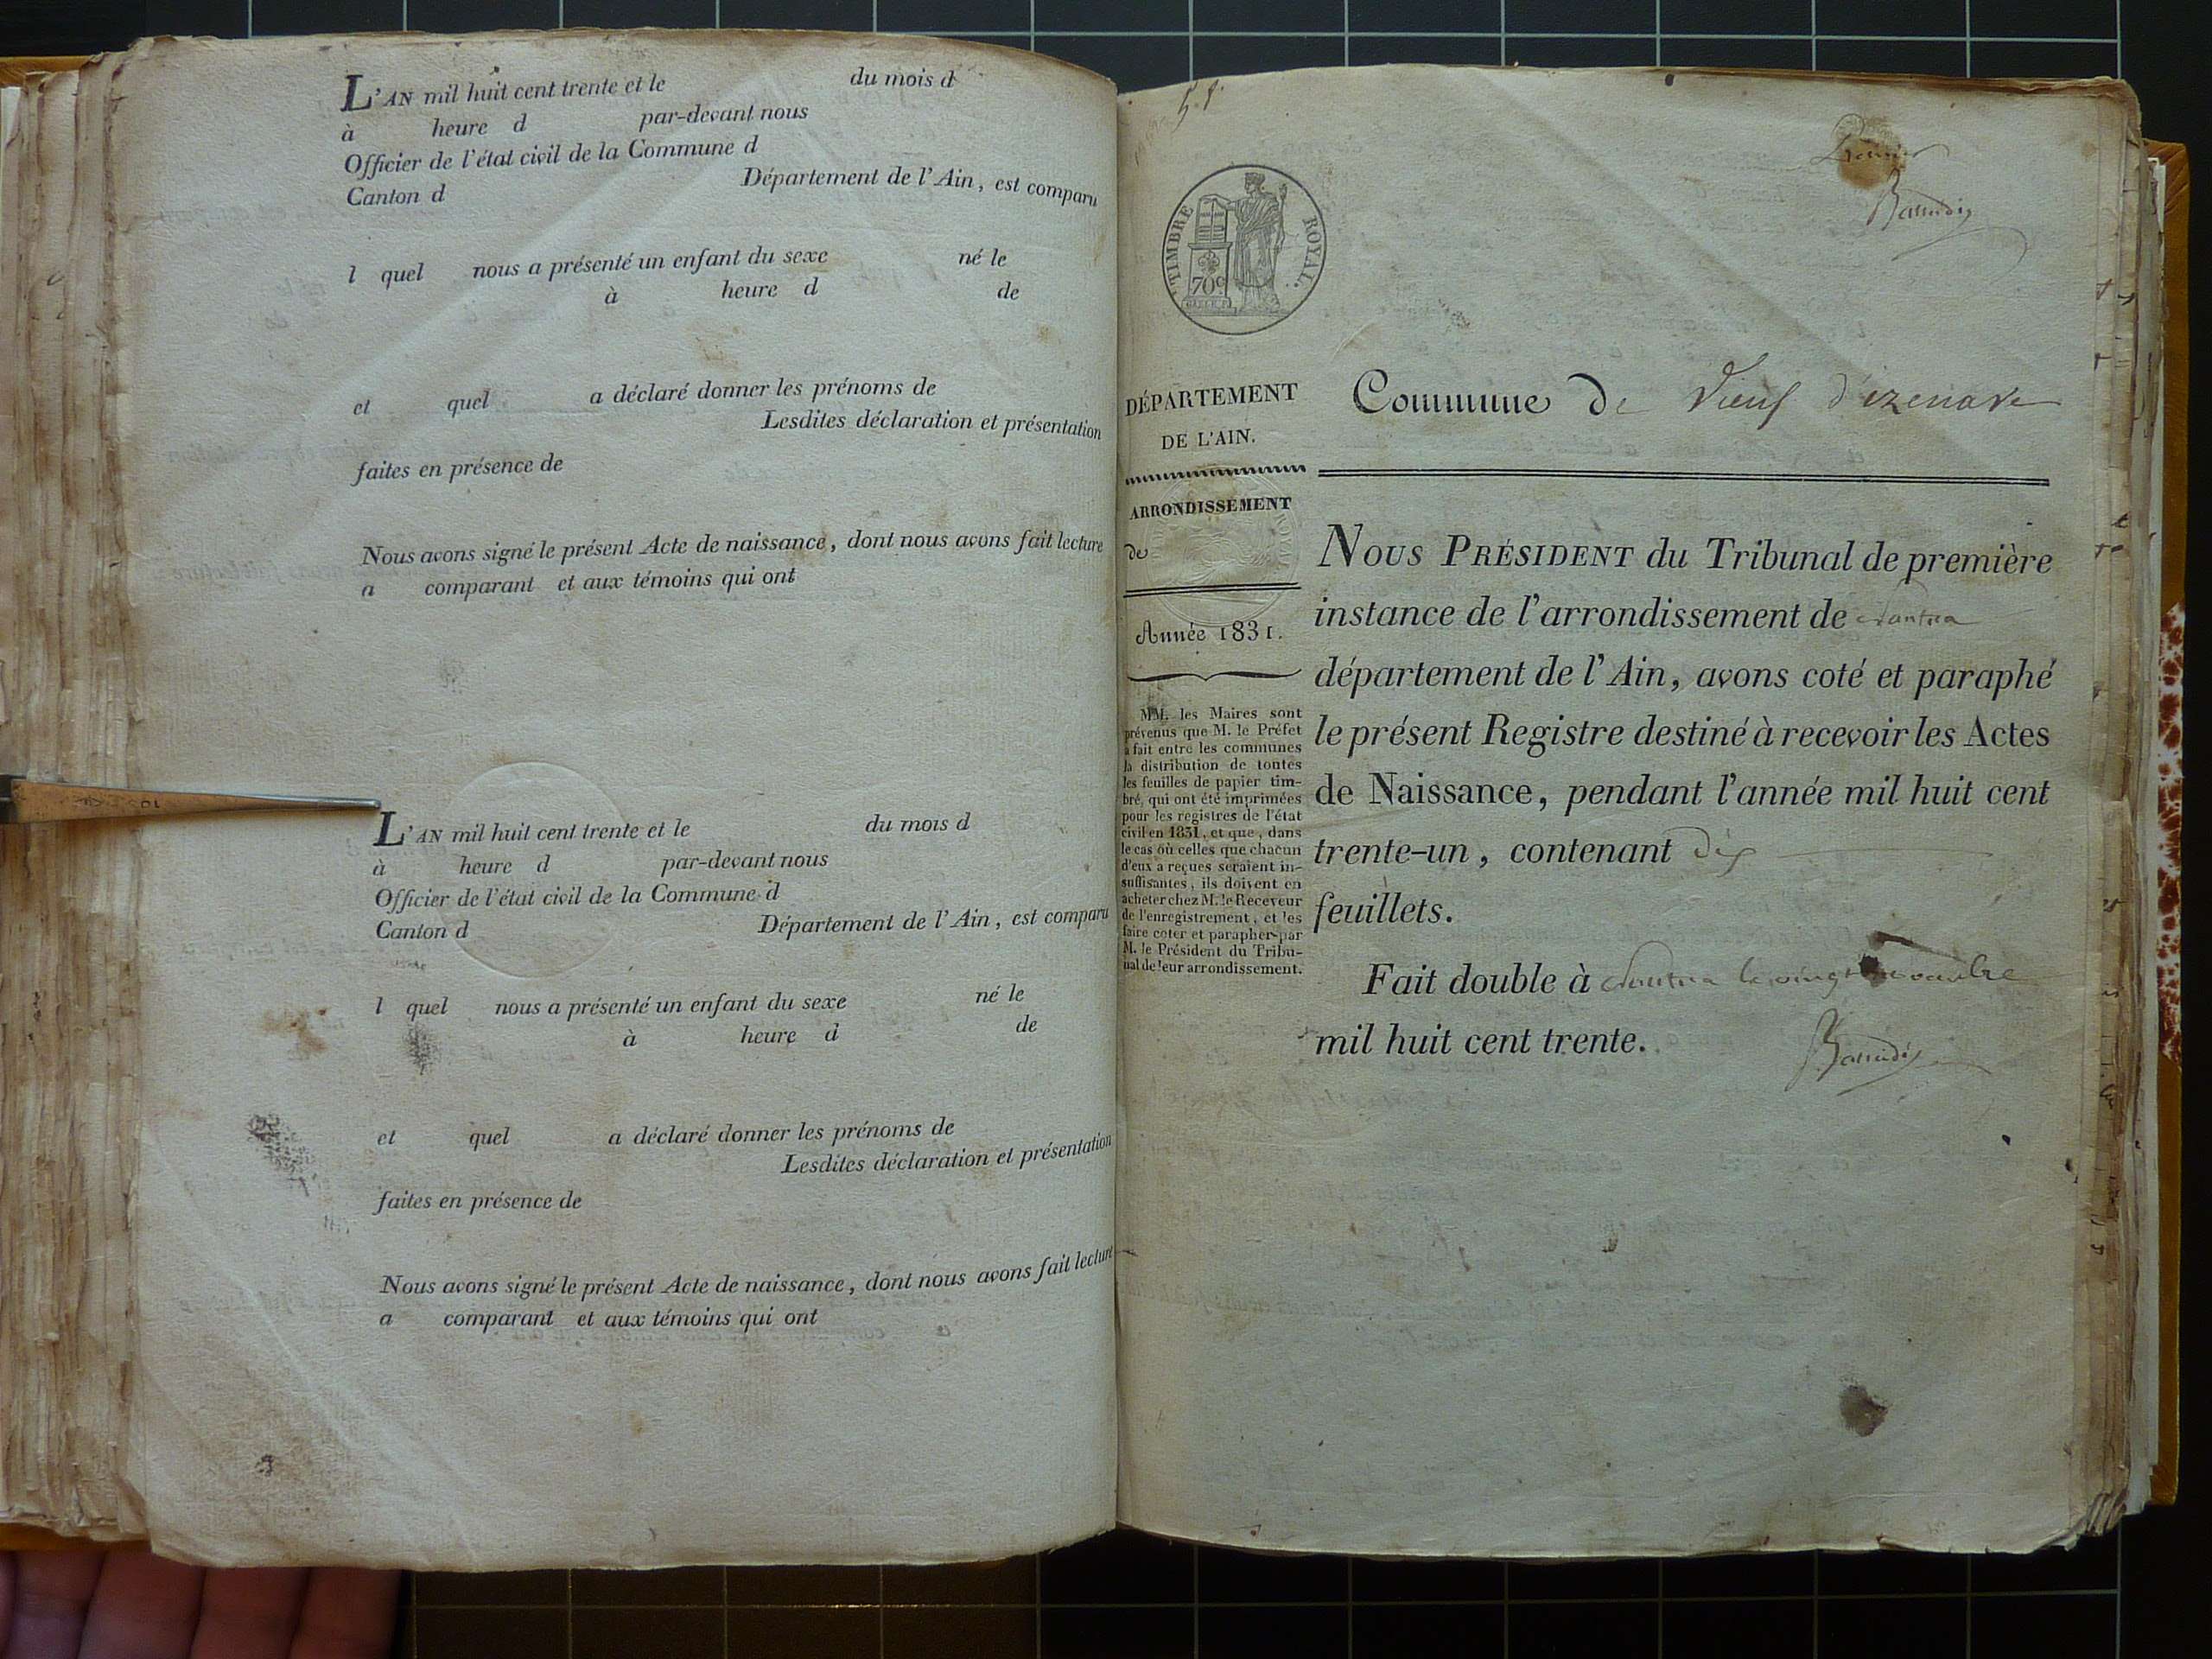 L'AN mil huit cent trente et le du mois d
à heure d par-devant nous
Officier de l'état civil de la Commune d
Canton d Département de l'Ain, est comparu
l quel nous a présenté un enfant du sexe né le
à heure d de
et quel a déclaré donner les prénoms de
Lesdites déclaration et présentation
faites en présence de
Nous avons signé le présent Acte de naissance, dont nous avons fait lecture
a comparant et aux témoins qui ont
L'AN mil huit cent trente et le du mois d
à heure d par-devant nous
Officier de l'état civil de la Commune d
Canton d Département de l'Ain, est comparu
l quel nous a présenté un enfant du sexe né le
à heure d de
et quel a déclaré donner les prénoms de
Lesdites déclaration et présentation
faites en présence de
Nous avons signé le présent Acte de naissance, dont nous avons fait lecture
a comparant et aux témoins qui ont
Premier
TIMBRE ROYAL.
70c
DÉPARTEMENT
DE L'AIN.
ARRONDISSEMENT
de
Année 1831.
MM. les Maires sont
prévenus que M. le Préfet
a fait entre les communes
la distribution de toutes
les feuilles de papier tim-
bré, qui ont été imprimées
pour les registres de l'état
civil en 1831, et que, dans
le cas où celles que chacun
d'eux a reçues seraient in-
suffisantes, ils doivent en
acheter chez M. le Receveur
de l'enregistrement, et les
faire coter et parapher par
M. le Président du Tribu-
nal de leur arrondissement.
Commune De Vieuf d'izenave
NOUS PRÉSIDENT du Tribunal de première
instance de l'arrondissement de Nantua
département de l'Ain, avons coté et paraphé
le présent Registre destiné à recevoir les Actes
de Naissance, pendant l'année mil huit cent
trente-un, contenant dix
feuillets.
Fait double à Nantua le vingt novembre
mil huit cent trente.